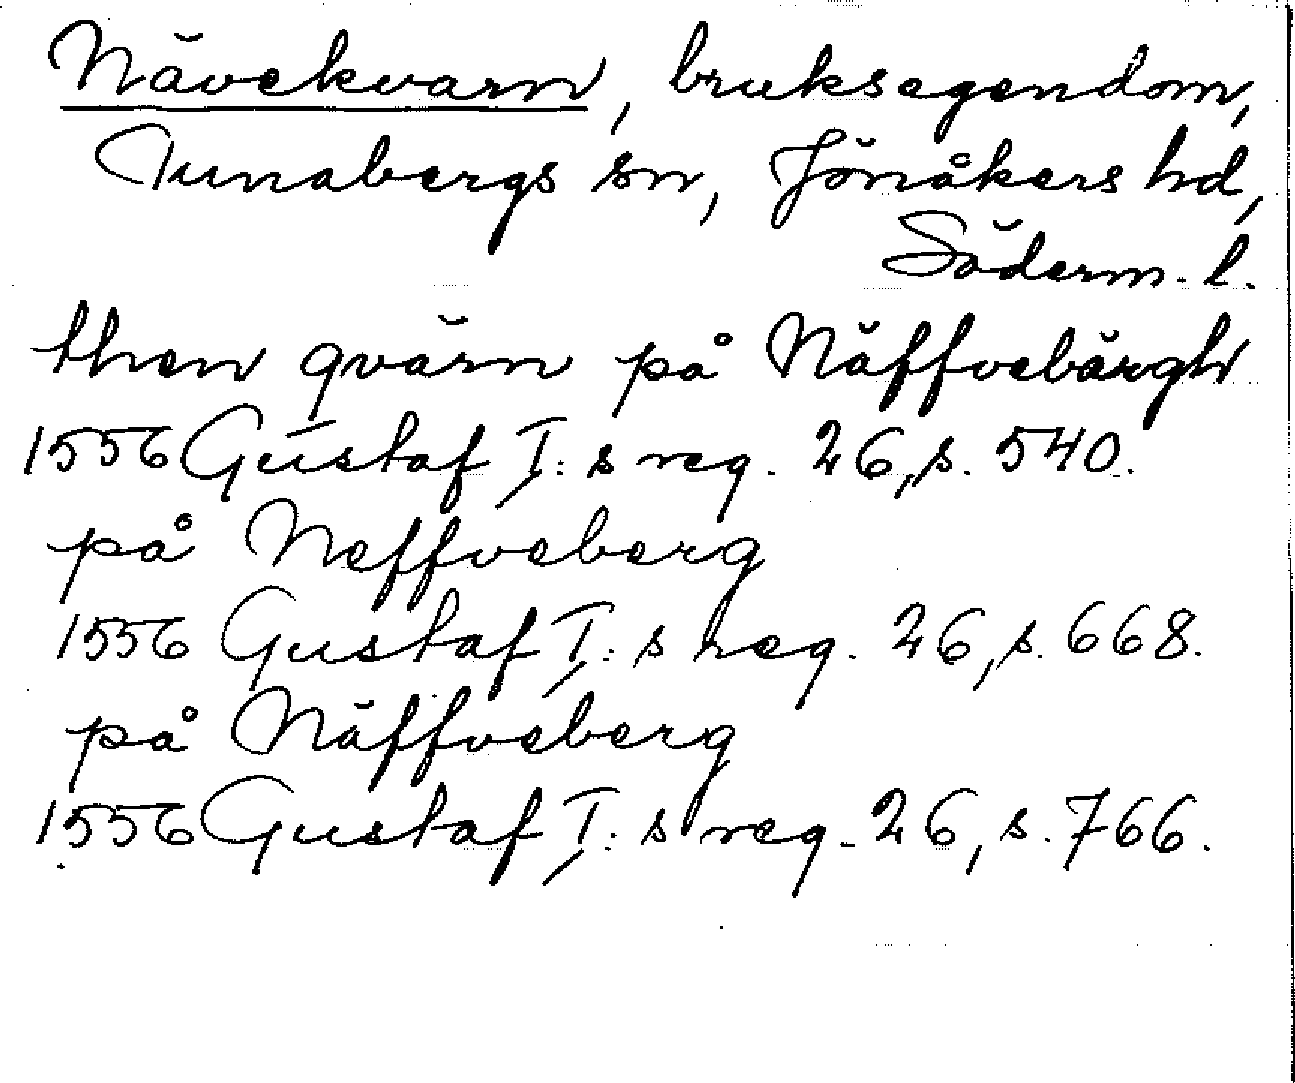 Nävekvarn, bruksegendom,
Tunabergs sn, Jönåkers hd,
Söderm. l.
then qvärn på Näffvebärgh
1556 Gustaf I: s reg. 26, s. 540.
på Neffveberg
1556 Gustaf I: s reg. 26, s. 668.
på Näffveberg
1556 Gustaf I: s reg. 26, s. 766.